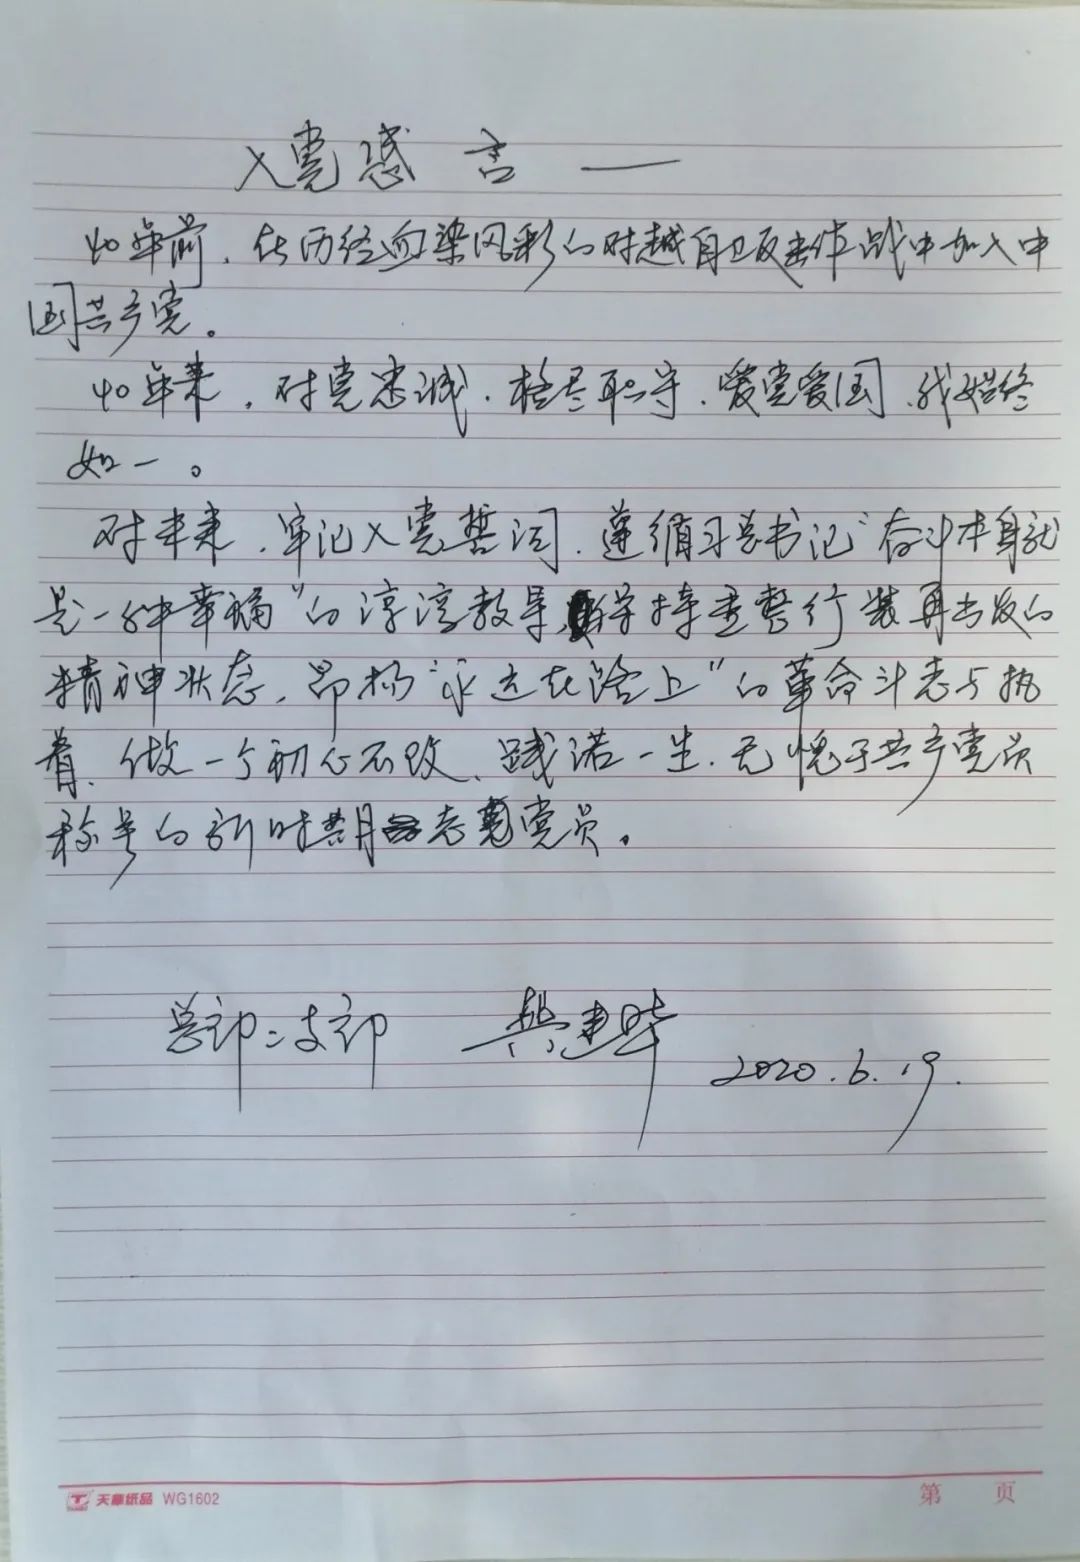 入党感言——
40年前，在历经血染风彩的对越自卫反击作战中加入中
国共产党。
40年来，对党忠诚、恪尽职守、爱党爱国，我始终
如一。
对未来，牢记入党誓词，遵循习总书记“奋斗本身就
是一种幸福”的谆谆教导，保持重整行装再出发的
精神状态，昂扬“永远在路上”的革命斗志与执
着，做一个初心不改、践诺一生、无愧于共产党员
称号的新时期老党员。
总部二支部 建华 2020.6.19.
天章纸品 WG1602 第 页